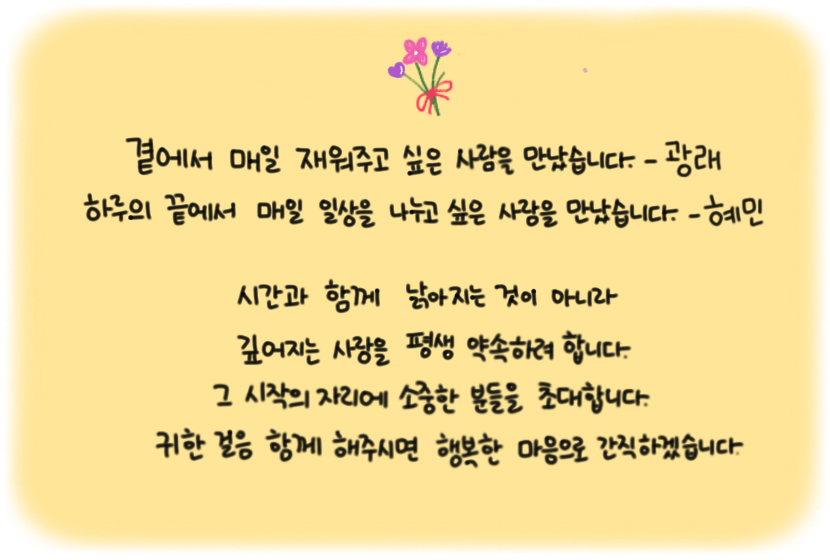 곁에서 매일 재워주고 싶은 사람을 만났습니다. - 광래
하루의 끝에서 매일 일상을 나누고 싶은 사람을 만났습니다. - 혜민
시간과 함께 낡아지는 것이 아니라
깊어지는 사랑을 평생 약속하려 합니다.
그 시작의 자리에 소중한 분들을 초대합니다.
귀한 걸음 함께 해주시면 행복한 마음으로 간직하겠습니다.